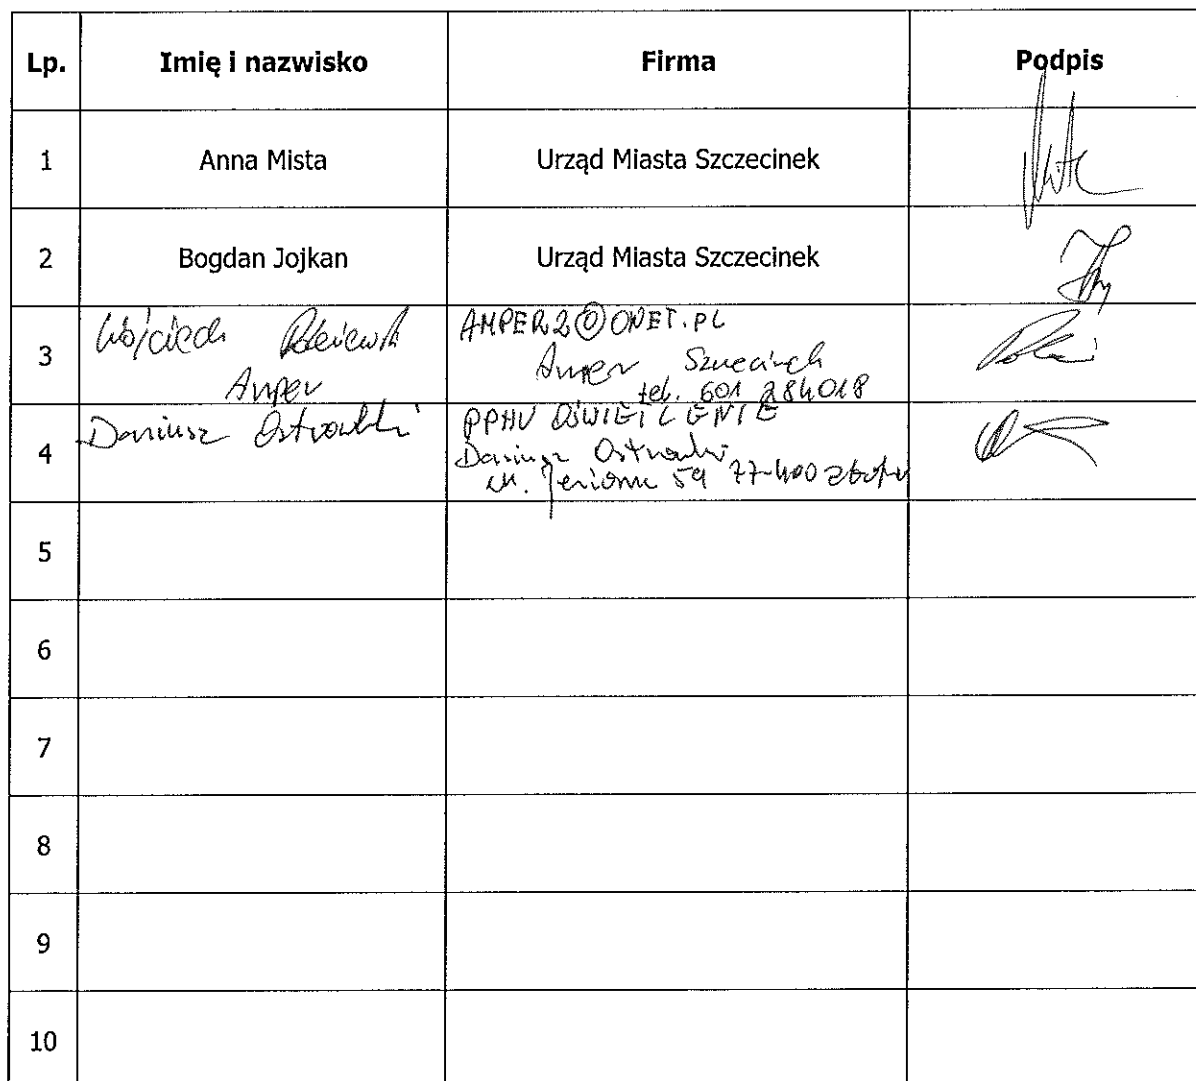 Lp. Imię i nazwisko Firma Podpis
1 Anna Mista Urząd Miasta Szczecinek
2 Bogdan Jojkan Urząd Miasta Szczecinek
3 Wojciech AMPER2@ONET.PL
Amper Amper Szczecinek
tel. 601 284018
4 Dariusz Ostrowski PPHU OŚWIETLENIE
Dariusz Ostrowski
ul. 59 77-400 Złotów
5
6
7
8
9
10